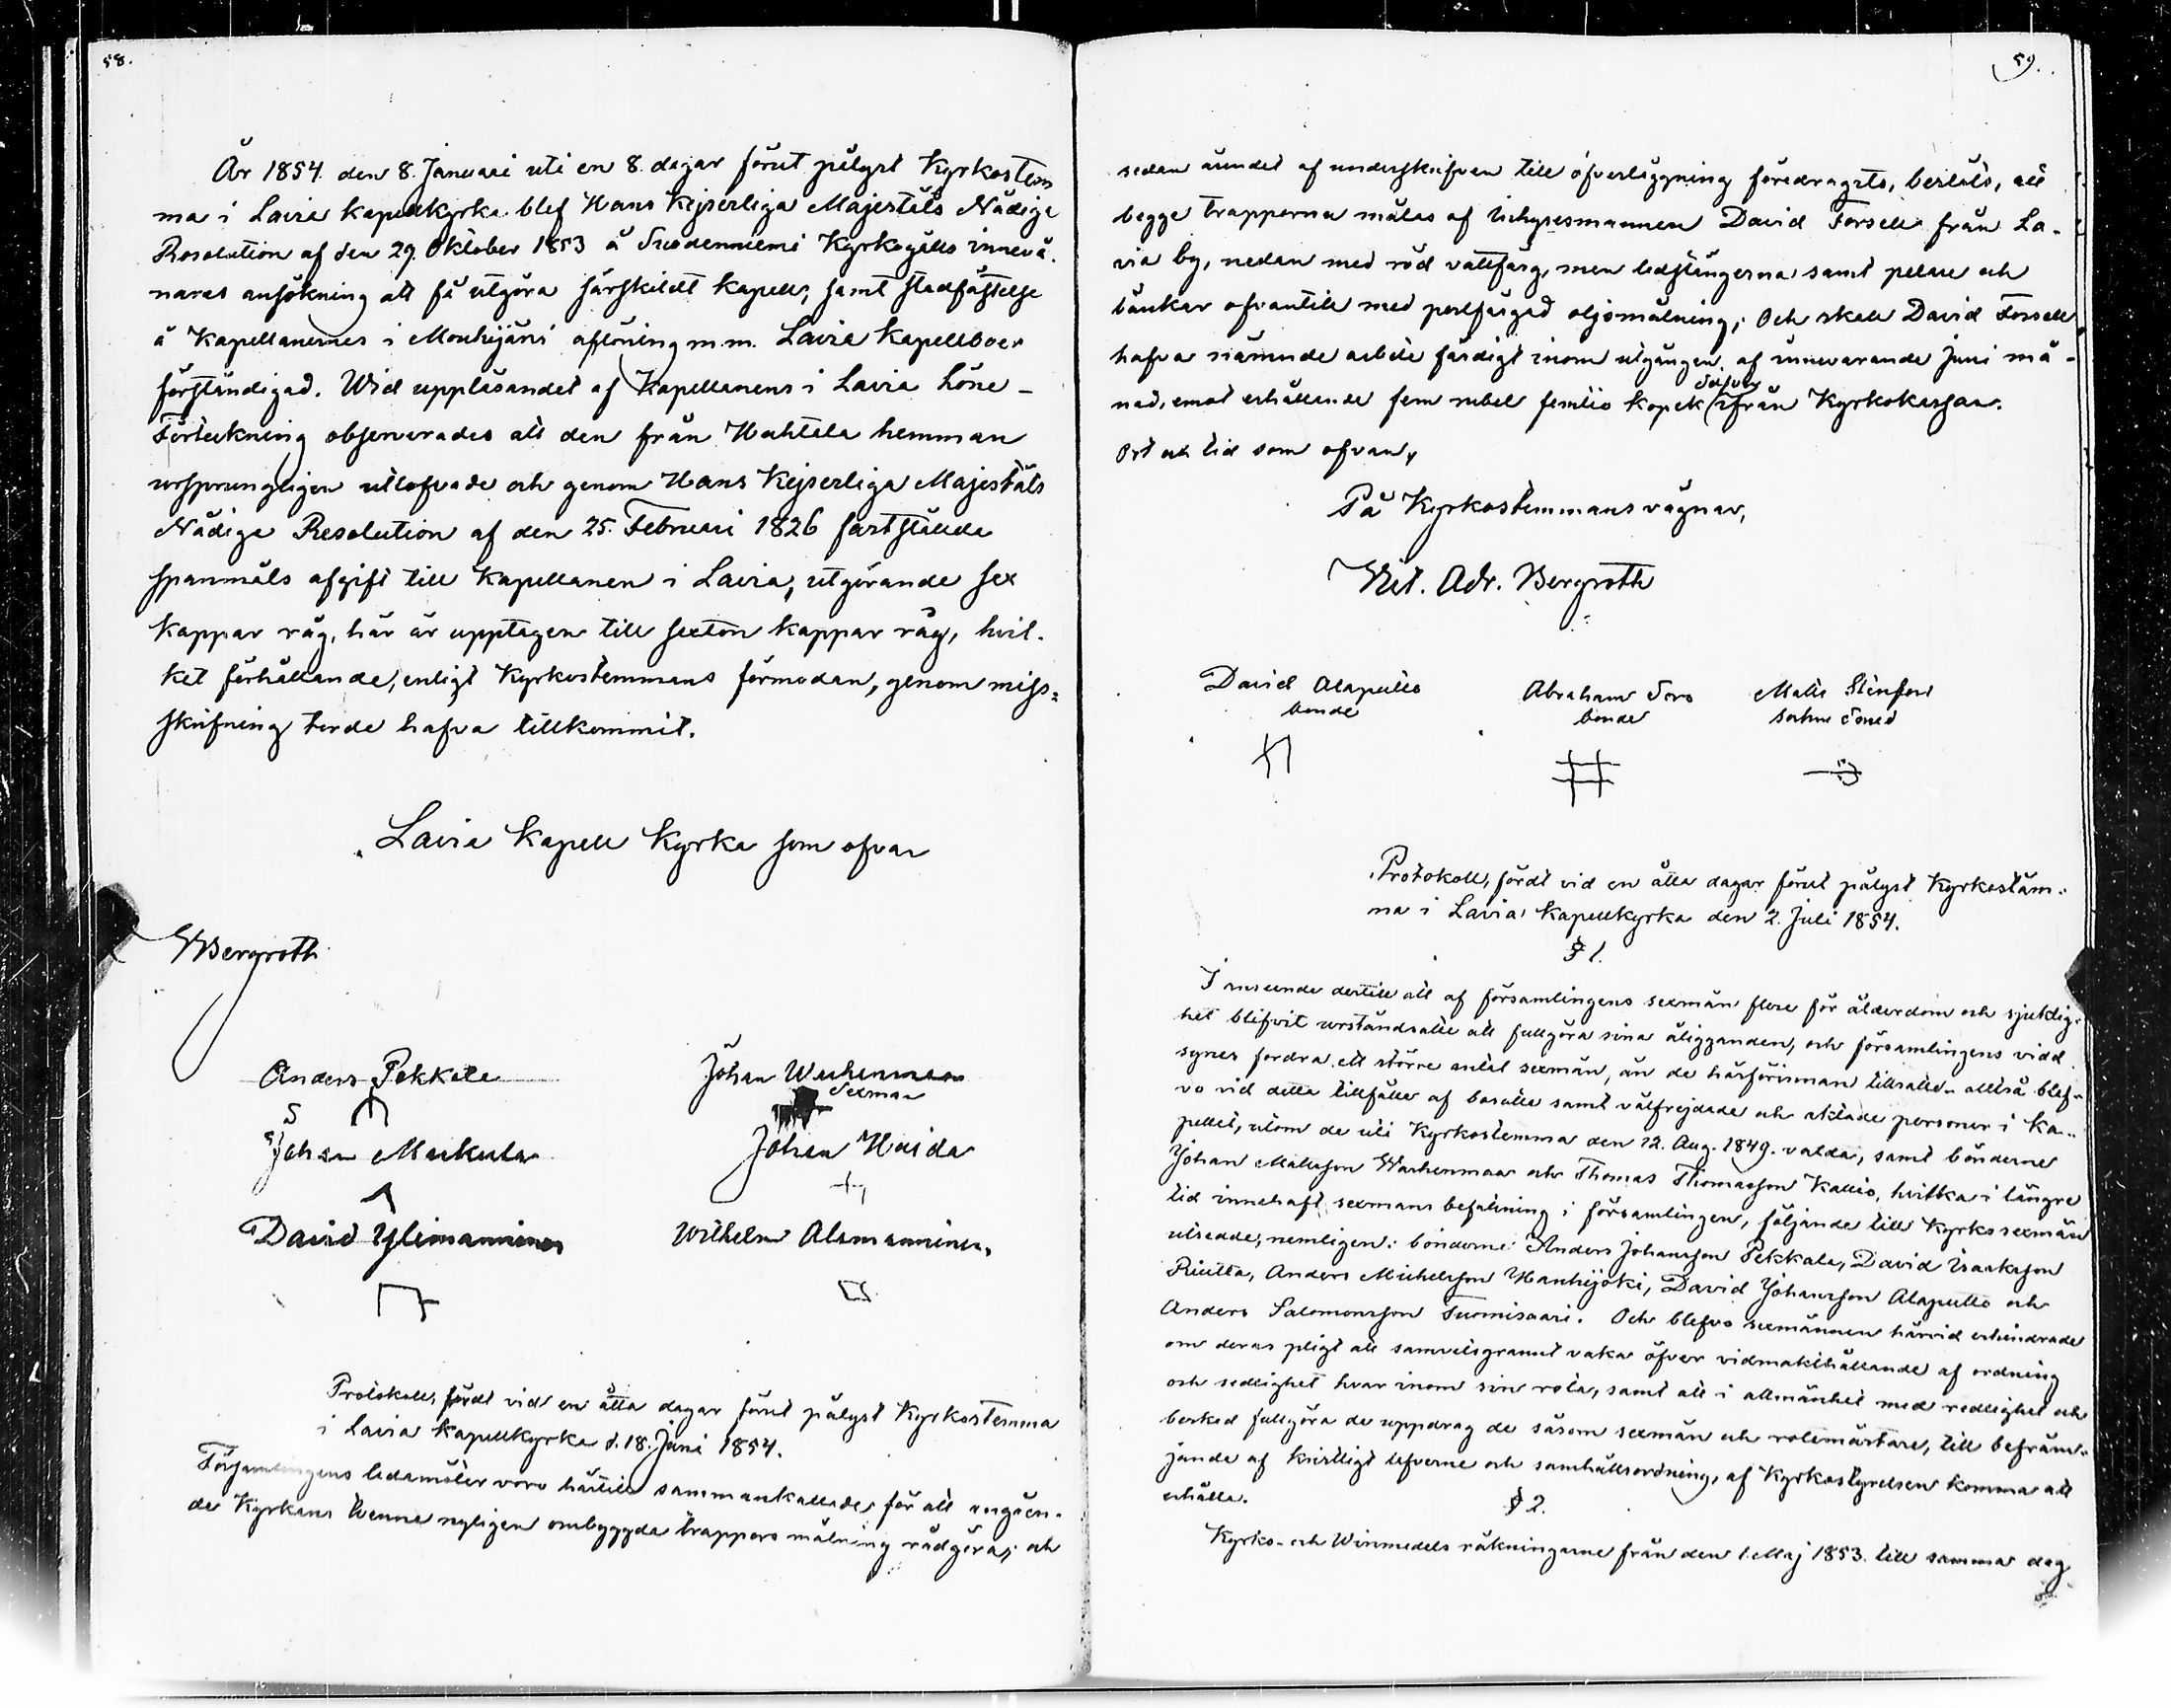 58.
År 1854 den 8. Januari uti en 8. dagar förut pålyst Kyrkostem
ma i Lavia Kapellkyrka blef Hans Kejserliga Majestäts Nådiga
Resolution af den 29. Oktober 1853 å Suodenniemi Kyrkogälls innevå-
nares ansökning att få utgöra särskildt Kapell, samt stadfästelse
å Kapellanernes i Mouhijärvi aflöning m.m. Lavia Kapellboer
förständigad. Wid uppläsandet af Kapellanens i Lavia Löne-
Förteckning observerades att den från Huhtala hemman
ursprungligen utlofvade och genom Hans Kejserliga Majestäts
Nådiga Resolution af den 25. Februari 1826 fastställda
spanmåls afgift till Kapellanen i Lavia, utgörande sex
Kappar råg, här är upptagen till sexton kappar råg, hvil-
ket förhållande, enligt Kyrkostemmans förmodan, genom miss-
skrifning torde hafva tillkommit.
Lavia Kapell Kyrka som ofvan
Bergroth
Anders Pekkala
Johan
Sexman
Johan Muukula
Johan Haida
David Ylimanninen
Wilhelm Alamanninen
Protokoll, fördt vid en åtta dagar förut pålyst Kyrkostemma
i Lavia Kapellkyrka d. 18. Juni 1854.
Församlingens ledamöter voro härtill sammankallade, för att angåen-
de Kyrkans tvenne nyligen ombyggda trappors målning rådgöra; och
59.
sedan ärendet af underskrifven till öfverläggning föredragits, beslöts, att
begge trapporna målas af Inhysesmannen David Forsell från La-
via by, nedan med röd vattfärg, men ledstängerna samt pelare och
bänkar ofvantill med perlfärgad oljemålning; Och skall David Forsell
hafva nämnde arbete färdigt inom utgången af innevarande Juni må-
nad, emot erhållande fem rubel femtio kopek Silfver ifrån Kyrkokassan.
Ort och tid som ofvan,
På Kyrkostemmans vägnar,
Vict. Adr. Bergroth
David Alapullio
bonde
Abraham Soro
bonde
Matts Stenfors
Protokoll, fördt vid en åtta dagar förut pålyst Kyrkostäm-
na i Lavia Kapellkyrka den 2. Juli 1854.
§ 1.
I anseende dertill att af församlingens sexmän flere för ålderdom och sjuklig-
het blifvit urståndsatte att fullgöra sina åligganden, och församlingens vidd
synes fordra ett större antal sexmän, än de härförinnan tillsatte - alltså blef-
vo vid detta tillfälle af bosatte samt välfrejdade och aktade personer i Ka-
pellet, utom de uti Kyrkostemma den 12. Aug. 1849. valda, samt bönderne
Johan Mattsson Wanhenmaa och Thomas Thomasson Kallio, hvilka i längre
tid innehaft sexmans befattning i församlingen, följande till Kyrkosexmän
utsedde, nemligen: bönderne Anders Johansson Pekkala, David Isaaksson
Riutta, Anders Michelsson Hanhijoki, David Johansson Alapullio och
Anders Salomonsson Tuomisaari. Och blefvo sexmännen härvid erhindrade
om deras pligt att samvetsgrannt vaka öfver vidmakthållande af ordning
och sedlighet hvar inom sin rota, samt att i allmänhet med redlighet och
besked fullgöra de uppdrag de såsom sexmän och rotemästare, till befräm-
jande af kristligt lefverne och samhällsordning, af Kyrkostyrelsen komma att
erhålla.
§ 2.
Kyrko- och Winmedels räkningarne från den 1. Maj 1853. till samma dag